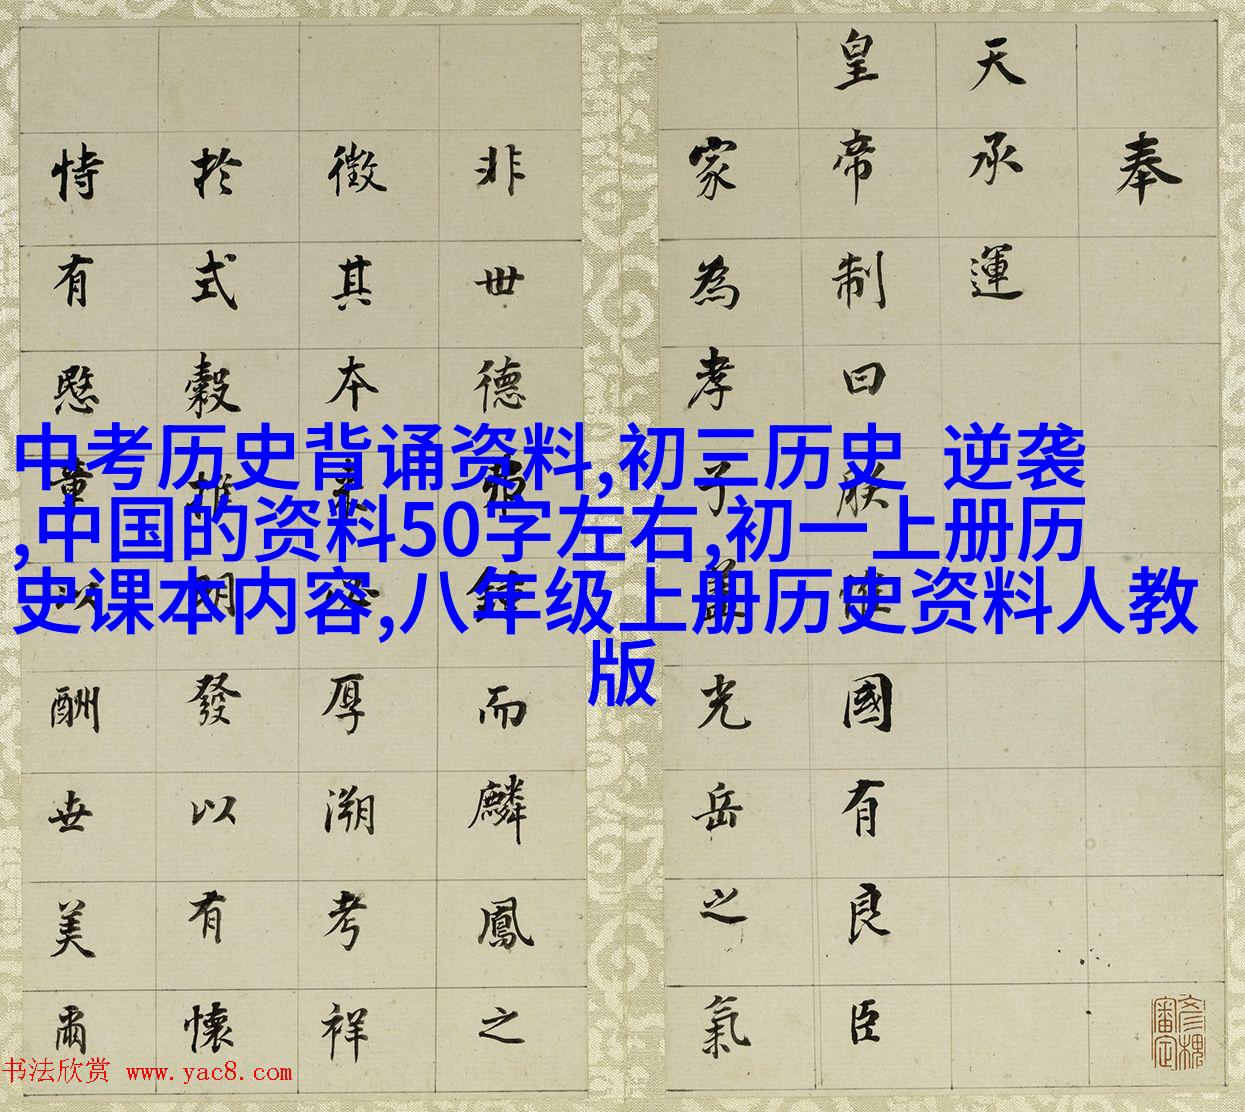 中考历史背诵资料,初三历史 逆袭
,中国的资料50字左右,初一上册历
史课本内容,八年级上册历史资料人教
版
奉
天承運
皇帝制曰朕惟國有良臣
家為孝子
光岳之氣
非世德
而麟鳳之
徵其本
厚溯考祥
於式穀
發以有懷
恃有慇
酬世美爾
书法欣赏 www.yac8.com